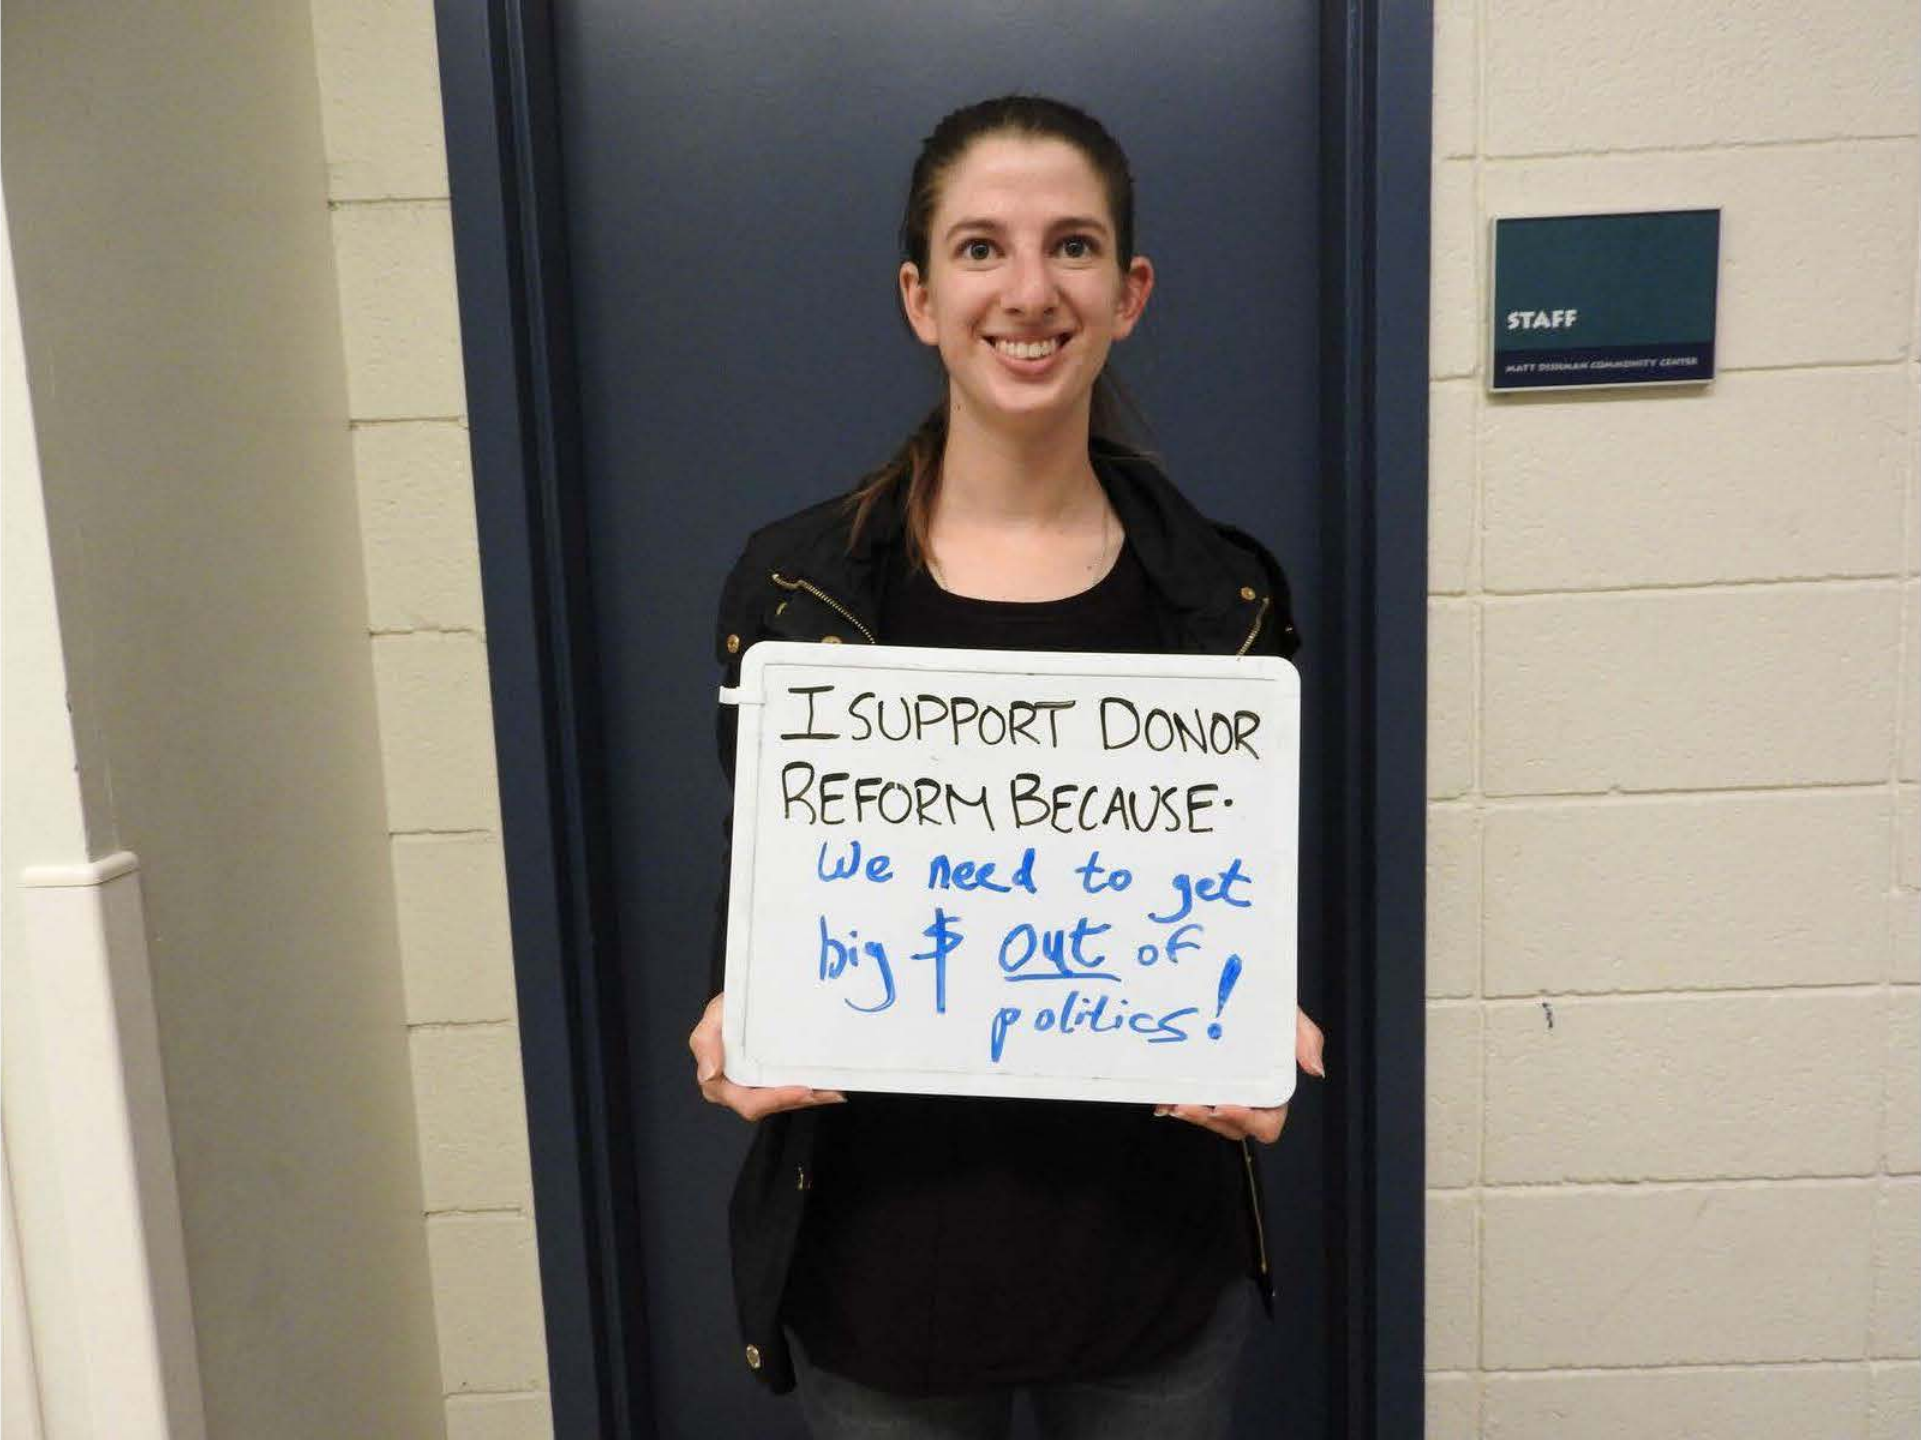 STAFF
MATT DISHMAN COMMUNITY CENTER
I SUPPORT DONOR
REFORM BECAUSE.
We need to get
big $ out of
politics!